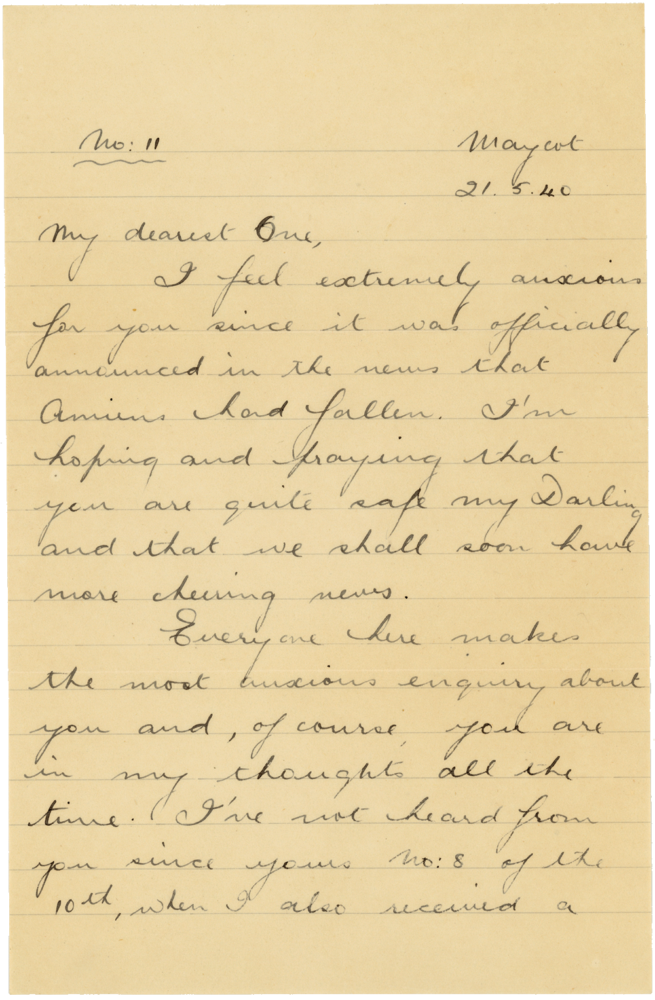 No: 11
Maycot
21.5.40
My dearest One,
I feel extremely anxious
for you since it was officially
announced in the news that
Amiens had fallen. I'm
hoping and praying that
you are quite safe my Darling
and that we shall soon have
more cheering news.
Everyone here makes
the most anxious enquiry about
you and, of course, you are
in my thoughts all the
time. I've not heard from
you since yours No: 8 of the
10th, when I also received a